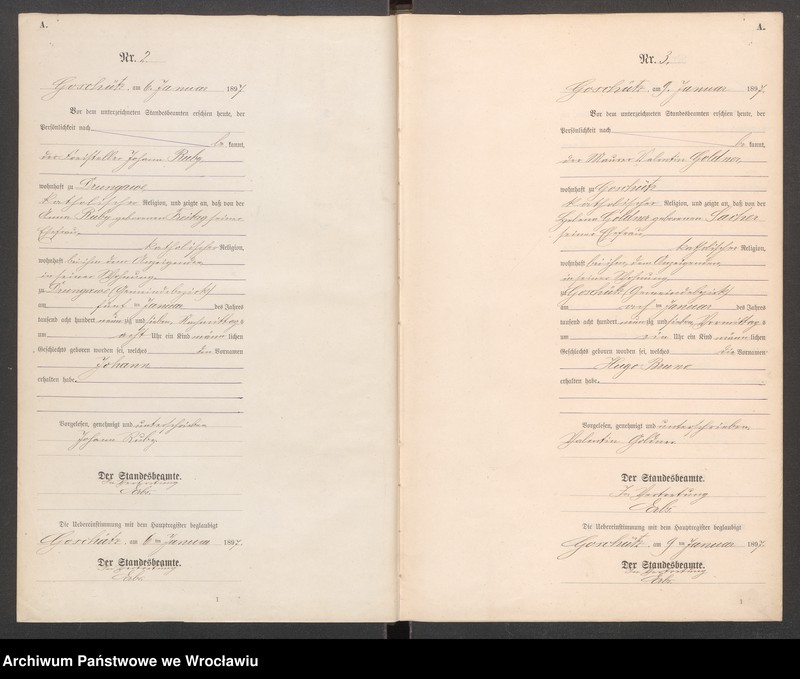 A.
Nr. 2.
Goschütz am 6. Januar 1897.
Vor dem unterzeichneten Standesbeamten erschien heute, der
Persönlichkeit nach
be kannt,
der Freisteller Johann Ruby
wohnhaft zu Drungawe
katholischer Religion, und zeigte an, daß von der
Anna Ruby geborenen seiner
Ehefrau,
katholischer Religion,
wohnhaft bei ihm dem Anzeigenden
in seiner Wohnung
zu Drungawe (Gemeindebezirk)
am fünf ten Januar des Jahres
tausend acht hundert neun zig und sieben, Nachmittags
um acht Uhr ein Kind männ lichen
Geschlechts geboren worden sei, welches den Vornamen
Johann
erhalten habe.
Vorgelesen, genehmigt und unterschrieben
Johann Ruby
Der Standesbeamte.
In Vertretung
Die Uebereinstimmung mit dem Hauptregister beglaubigt
Goschütz, am 6 ten Januar 1897.
Der Standesbeamte.
In Vertretung
1
A.
Nr. 3.
Goschütz am 9. Januar 1897.
Vor dem unterzeichneten Standesbeamten erschien heute, der
Persönlichkeit nach
be kannt,
der Maurer Valentin Goldner
wohnhaft zu Goschütz
katholischer Religion, und zeigte an, daß von der
Helena Goldner geborenen Sacher
seiner Ehefrau,
katholischer Religion,
wohnhaft bei ihm, dem Anzeigenden
in seiner Wohnung
zu Goschütz (Gemeindebezirk)
am ten Januar des Jahres
tausend acht hundert neun zig und sieben Vormittags
um ein Uhr ein Kind männ lichen
Geschlechts geboren worden sei, welches die Vornamen
Hugo Bruno
erhalten habe.
Vorgelesen, genehmigt und unterschrieben,
Valentin Goldner
Der Standesbeamte.
In Vertretung
Die Uebereinstimmung mit dem Hauptregister beglaubigt
Goschütz, am 9 ten Januar 1897.
Der Standesbeamte.
In Vertretung
1
Archiwum Państwowe we Wrocławiu